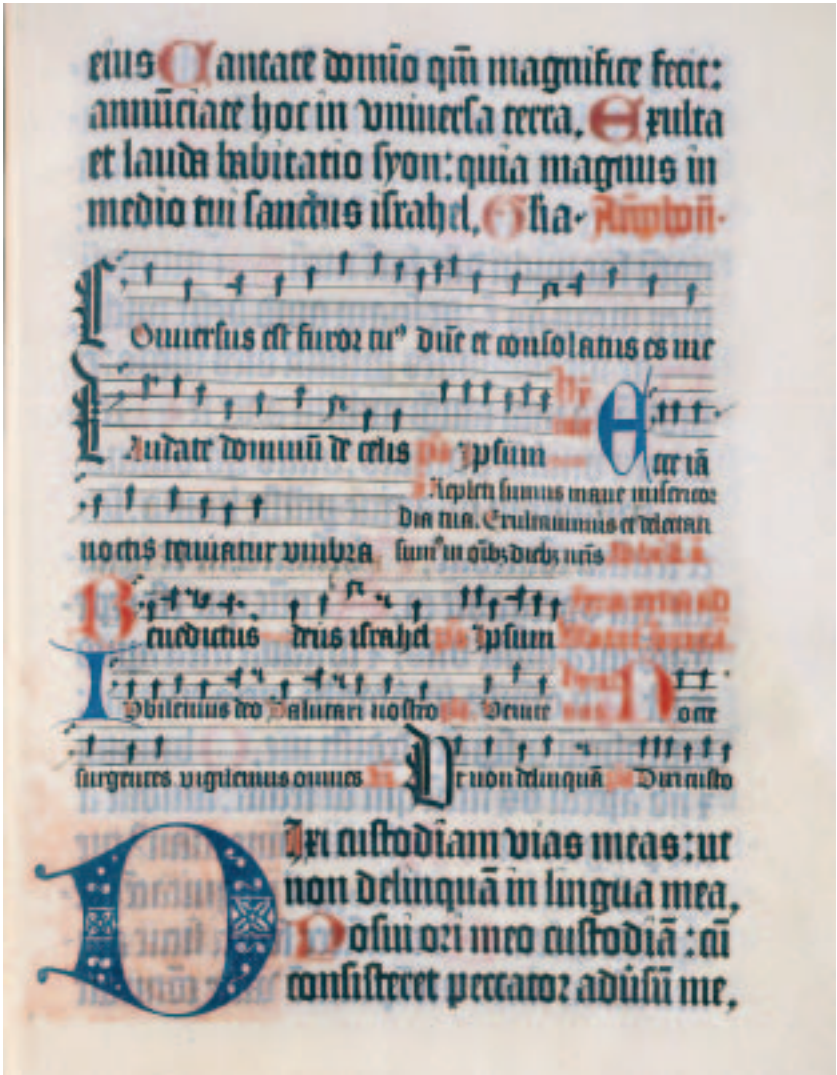 eius Cantate domīo qm̄ magnifice fecit:
annūciate hoc in vniuersa terra. Exulta
et lauda habitatio syon: quia magnus in
medio tui sanctus israhel. Gl̄ia. Antiphoñ.
Onuersus est furor tuꝰ dn̄e et consolatus es me
Audate dominū de celis ps̄ Ipsum Hym
nus
Ecce iā
Repleti sumus mane misericor
dia tua. Exultauimus et delectati
noctis tenuatur vmbra sumꝰ in oībꝫ diebꝫ nr̄is
Benedictus deus israhel ps̄ Ipsum
Ivbilemus deo Salutari nostro ps̄. Venite Nocte
surgentes vigilemus omnes Vt non delinquā ps̄ Dixi custo
Dixi custodiam vias meas: ut
non delinquā in lingua mea.
Posui ori meo custodiā: cū
consisteret peccator aduersū me.